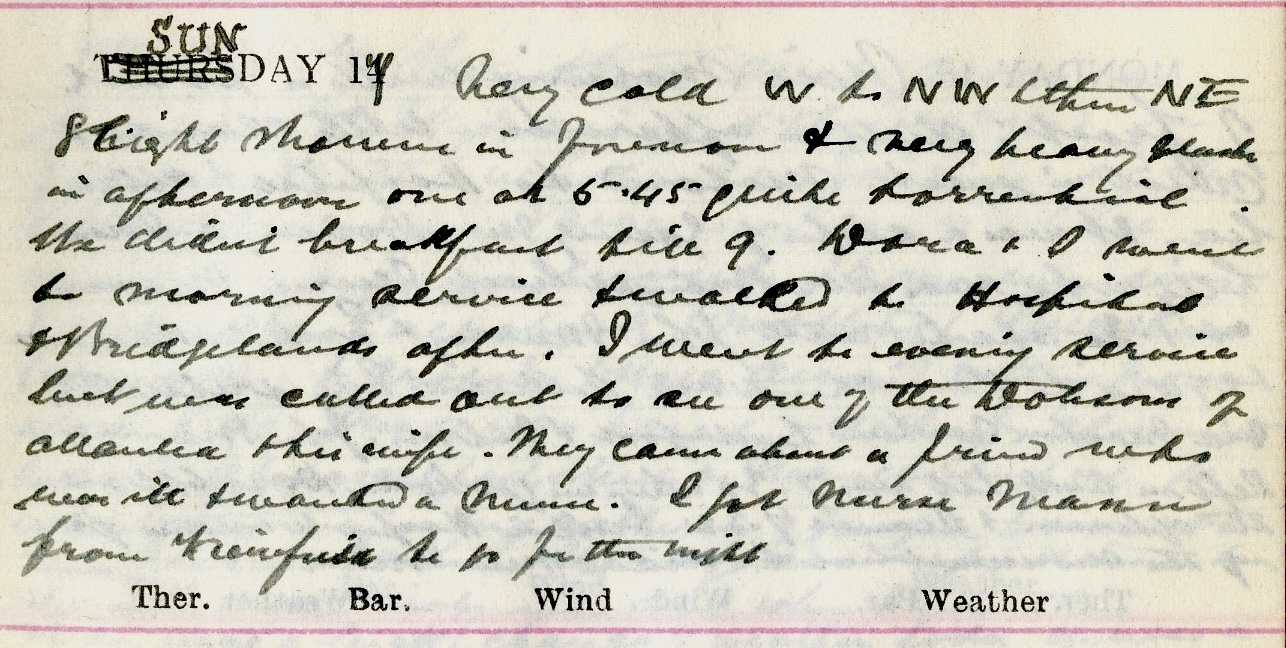 SUN
THURSDAY 14 Very cold W to NW & then NE
Slight Showers in Forenoon & very heavy
in afternoon one at 5.45 quite torrential.
We didn't breakfast till 9. Dora & I went
to morning service & walked to Hospital
& Bridgelands after. I went to evening service
but was called out to see one of the Dobsons of
& his wife. They came about a friend who
was ill & wanted a Nurse. I got Nurse Mann
from to go for the night
Ther. Bar. Wind Weather